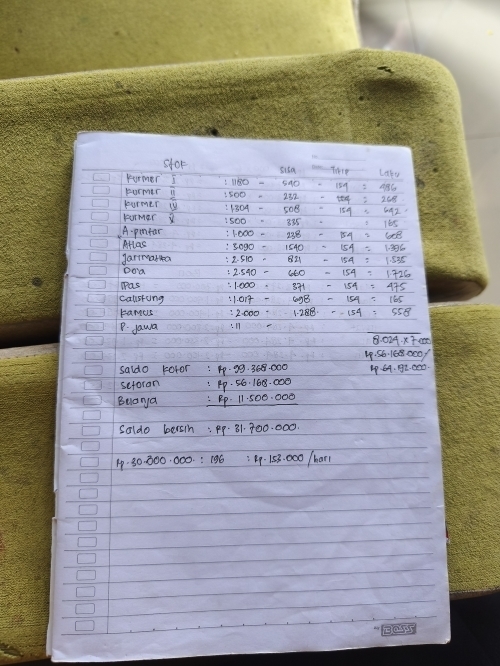 Stok Sisa Titip Laku
Kurmer I : 1180 - 540 - 154 = 486
Kurmer II : 500 - 232 - 154 = 268
Kurmer IV : 1.304 - 508 - 154 = 642
Kurmer V : 500 - 335 - = 165
A.pintar : 1.000 - 238 - 154 = 608
Atlas : 3.090 - 1540 - 154 = 1.396
Jarimatika : 2.510 - 821 - 154 = 1.535
Doa : 2.540 - 660 - 154 = 1.726
IPas : 1.000 - 371 - 154 = 475
Calistung : 1.017 - 698 - 154 = 165
Kamus : 2.000 - 1.288 - 154 = 558
P. Jawa : 11 -
8.024 x 7.000
Rp. 56.168.000/
Rp. 64.192.000
Saldo kotor : Rp. 99.368.000
Setoran : Rp. 56.168.000
Belanja : Rp. 11.500.000
Saldo bersih : Rp. 31.700.000
Rp. 30.000.000 : 196 : Rp. 153.000 /hari
BOSS